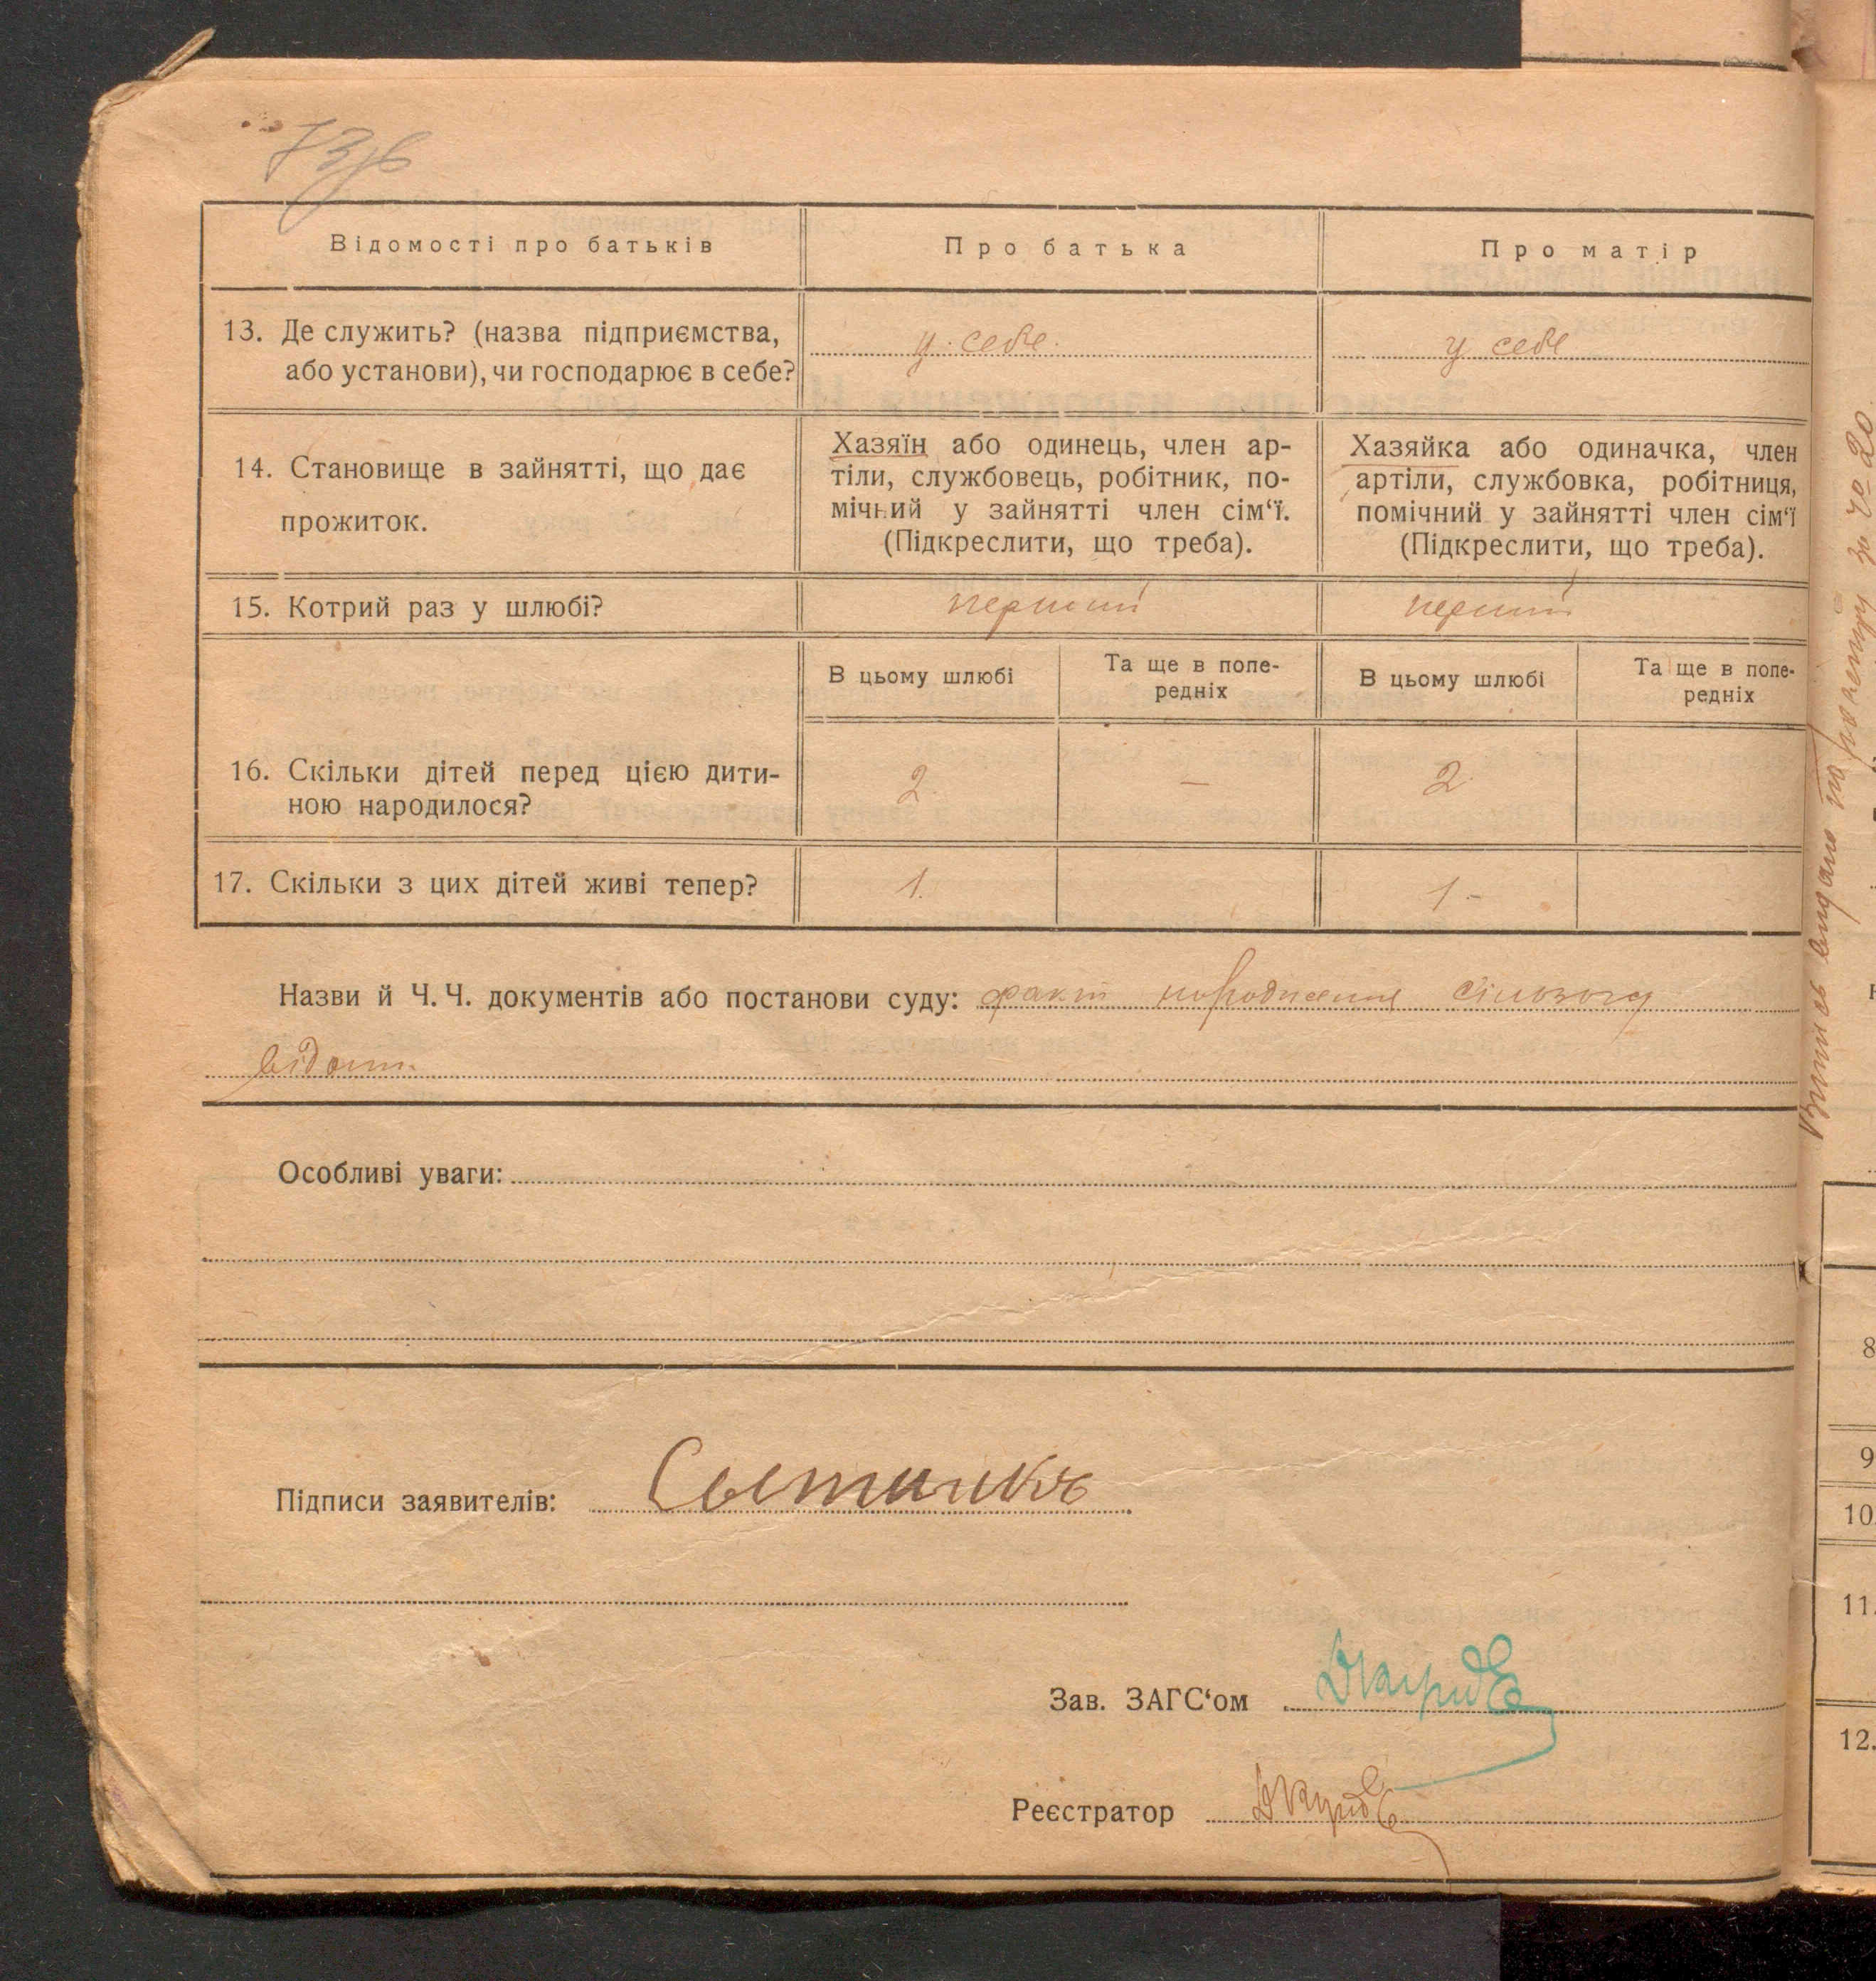 73зв
Відомості про батьків
Про батька
Про матір
13. Де служить? (назва підприємства,
або установи), чи господарює в себе?
у себе.
у себе
14. Становище в зайнятті, що дає
прожиток.
Хазяїн або одинець, член ар-
тіли, службовець, робітник, по-
мічний у зайнятті член сім‘ї.
(Підкреслити, що треба).
Хазяйка або одиначка, член
артіли, службовка, робітниця,
помічний у зайнятті член сім‘ї
(Підкреслити, що треба).
15. Котрий раз у шлюбі?
перший
перший
В цьому шлюбі
Та ще в попе-
редніх
В цьому шлюбі
Та ще в попе-
редніх
16. Скільки дітей перед цією дити-
ною народилося?
2.
—
2
17. Скільки з цих дітей живі тепер?
1.
1.-
Назви й Ч. Ч. документів або постанови суду: факт народження сільраду
відом.
Особливі уваги:
Підписи заявителів:
Зав. ЗАГС‘ом
Реєстратор
Випись видано на
за № 20.
8
9
10.
11.
12.